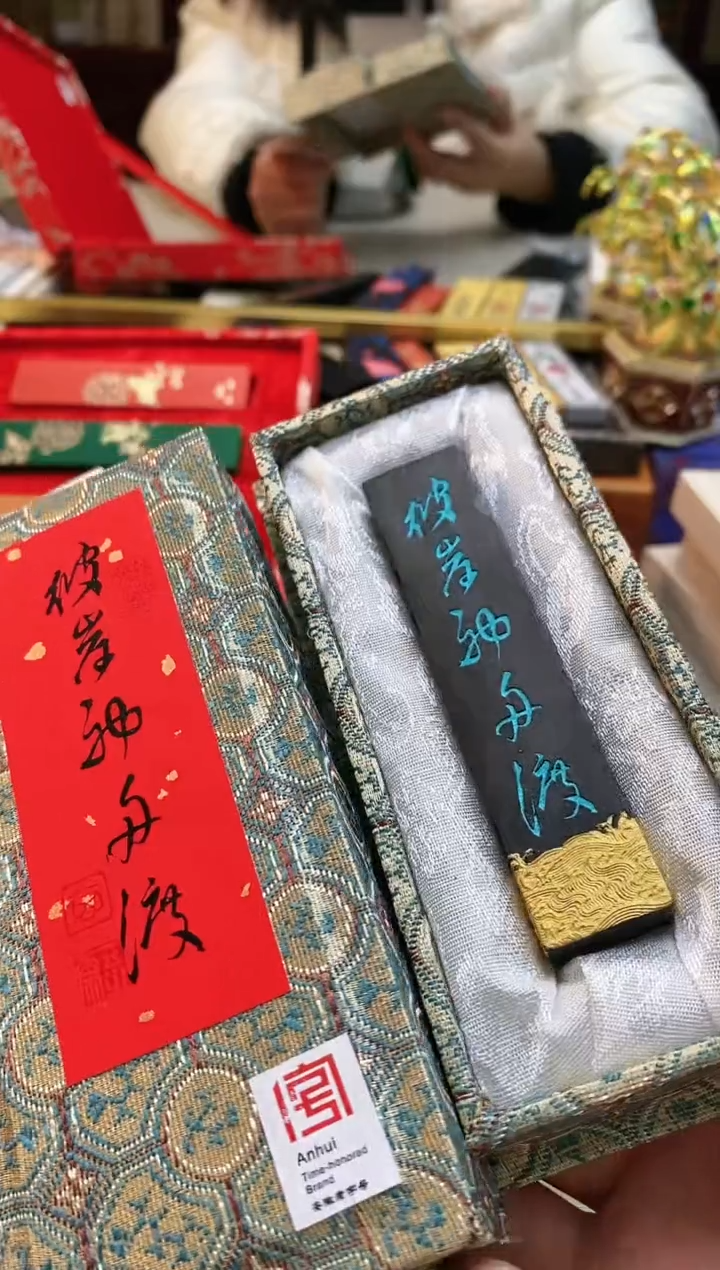 彼岸神舟渡
彼岸神舟渡
Anhui
Time-honored
Brand
安徽老字号